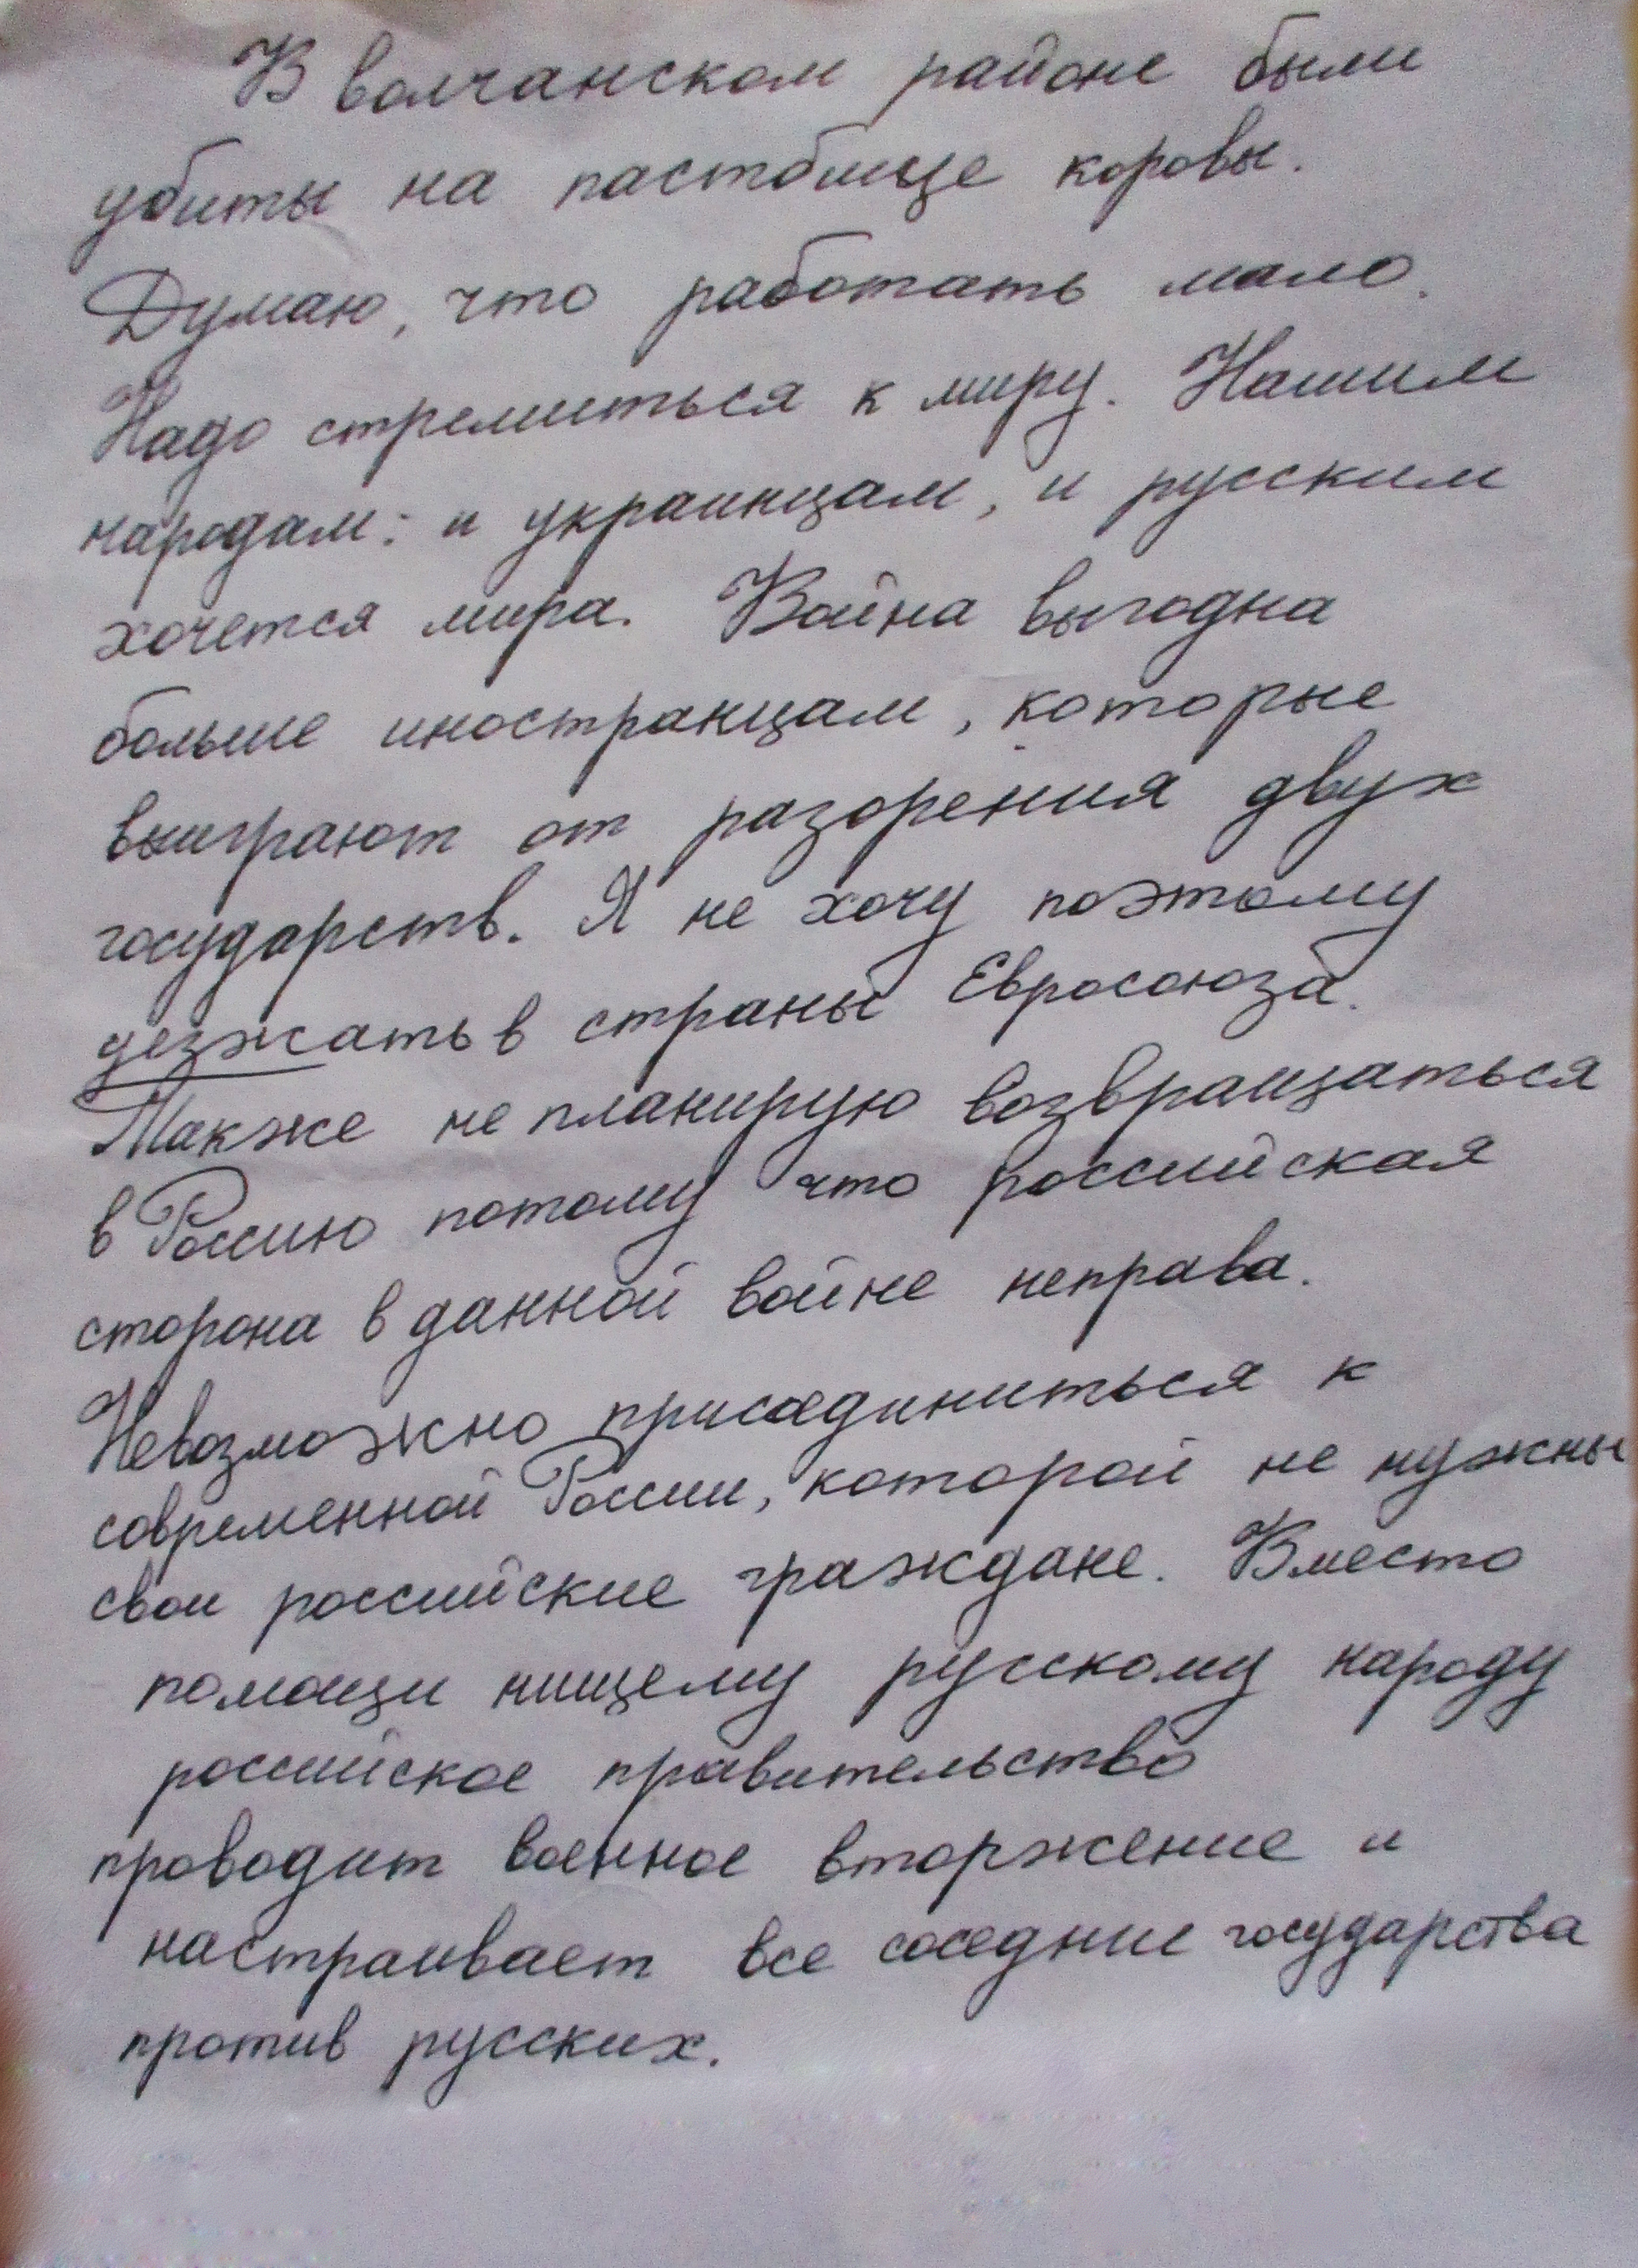 В волчанском районе были
убиты на пастбище коровы.
Думаю, что работать мало.
Надо стремиться к миру. Нашим
народам: и украинцам, и русским
хочется мира. Война выгодна
больше иностранцам, которые
выиграют от разорения двух
государств. Я не хочу поэтому
уезжать в страны Евросоюза.
Также не планирую возвращаться
в Россию потому что российская
сторона в данной войне неправа.
Невозможно присоединиться к
современной России, которой не нужны
свои российские граждане. Вместо
помощи нищему русскому народу
российское правительство
проводит военное вторжение и
настраивает все соседние государства
против русских.